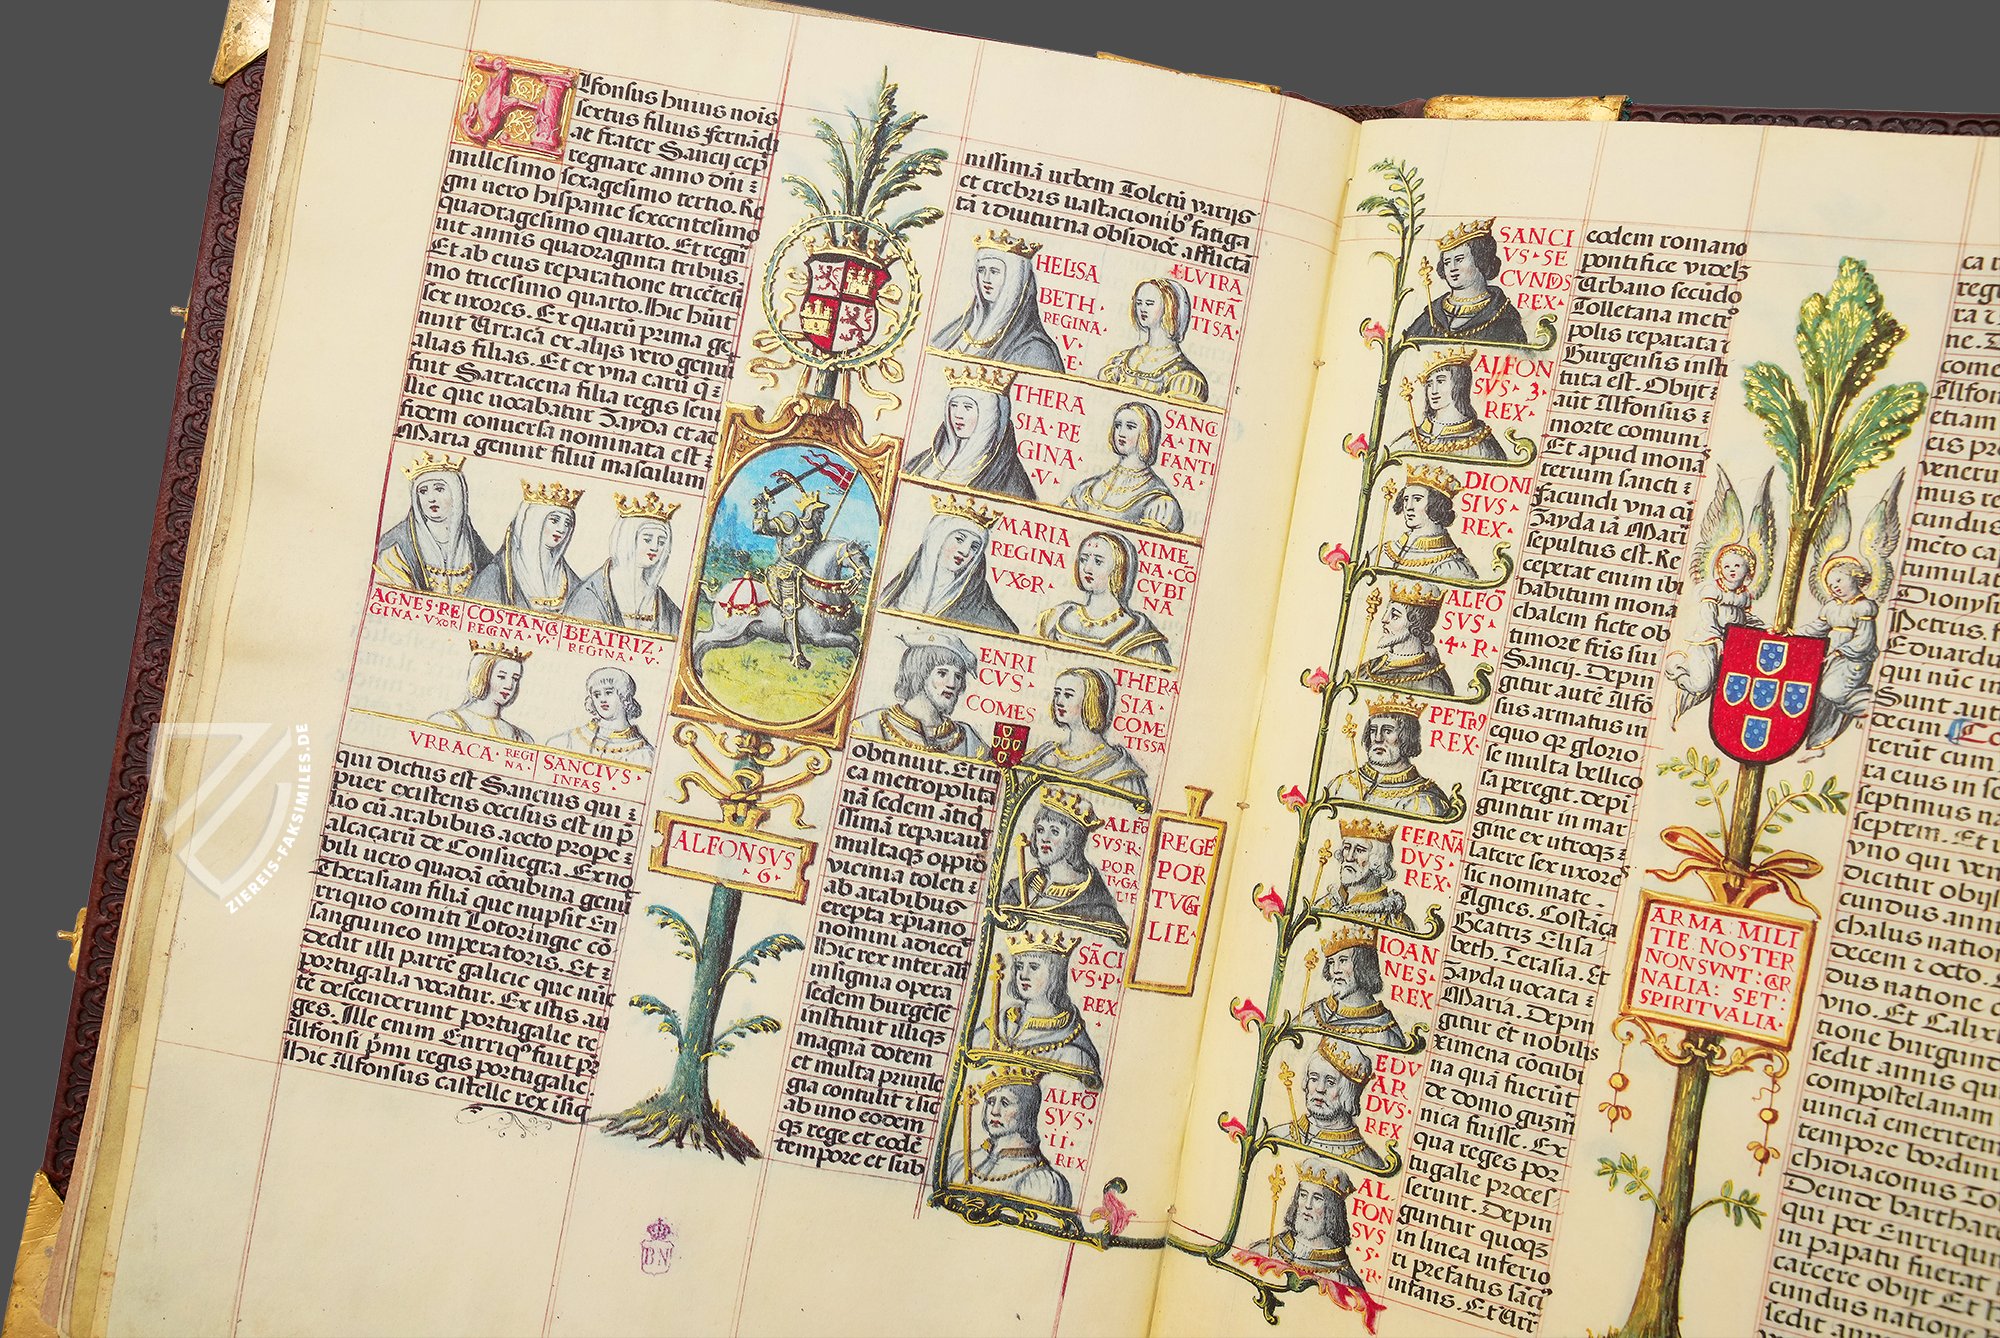 Alfonsus huius nois
sextus filius fernādi
ac frater Sancij cep
regnare anno dm̄i :
millesimo sexagesimo tertio. Re
gni vero hispanie sexcentesimo
quadragesimo quarto. Et regn
uit annis quadraginta tribus.
Et ab eius reparatione tricētesi
mo tricesimo quarto. Hic hūit
sex vxores. Ex quarū prima ge
nuit Urracā ex alijs vero genuit
alias filias. Et ex vna earū q̄
fuit Sarracena filia regis seui
lie que vocabatur Zayda et ad
fidem conuersa nominata est :
Maria genuit filiū masculum
AGNES·RE
GINA·VXOR
COSTANCA
REGINA·V·
BEATRIZ·
REGINA·V·
VRRACA·REGI
NA·
SANCIVS·
INFAS·
qui dictus est Sancius qui :
puer existens occisus est in p
lio cū arabibus acto prope :
alcaçarū de Consuegra. Ex no
bili vero quadā cōcubina genu
Therasiam filiā que nupsit En
rriquo comiti Lotoringie cō
sanguineo imperatoris. Et :
dedit illi partē galicie que nūc
portugalia vocatur. Ex istis au
tē descenderunt portugalie re
ges. Ille enim Enrriqꝰ fuit pr̄
Alfonsi p̄mi regis portugalie
Hic Alfonsus castelle rex insig
ALFONSVS
·6·
BN
nissimā urbem Toletū varijs
et crebris vastacionibꝰ fatiga
tā ⁊ diuturna obsidiōe afflictā
HELISA
BETH·
REGINA·
·V·
E·
ELVIRA
INFĀ
TISA·
THERA
SIA·RE
GINA·
·V·
SANC
A·IN
FANTI
SA·
MARIA
REGINA
VXOR·
XIME
NA·CŌ
CVBI
NA
ENRI
CVS·
COMES
THERA
SIA·
COME
TISSA
obtinuit. Et in
ea metropolita
nā sedem ātiq̄
ssimā reparauit
multaqꝫ oppid
vicinia toleti :
ab arabibus
erepta xp̄iano
nomini adiecit
Hic rex inter ali
insignia opera
sedem burgēse
instituit illiqꝫ
magnā dotem
et multa priuile
gia contulit ⁊ sic
ab uno eodem
qꝫ rege et eodē
tempore et sub
ALFŌ
SVS·R·
POR
TVGA
LIE
SĀCI
VS·P·
REX·
ALFŌ
SVS·
·II·
REX
REGE
POR
TVGA
LIE·
SANCI
VS·SE
CVNDS
REX·
ALFON
SVS·3·
REX·
DIONI
SIVS·
REX·
ALFŌ
SVS·
·4·R·
PETRꝰ
REX·
FERNĀ
DVS·
REX·
IOAN
NES·
REX
EDV
AR
DVS·
REX
AL
FON
SVS·
·5·
·R·
eodem romano
pontifice videlꝫ
Urbano secūdo
Tolletana metro
polis reparata ⁊
Burgensis insti
tuta est. Obijt :
aut Alfonsus :
morte comuni.
Et apud mona
terium sancti :
facundi vna cū
Zayda iā Mari
sepultus est. Re
ceperat enim ibi
habitum mona
chalem ficte ob
timorē fr̄is sui
Sancij. Depin
gitur autē Alfō
sus armatus in
equo qꝫ glorio
se multa bellico
sa peregit. depi
guntur in mar
gine ex utroqꝫ :
latere sex vxores
sic nominate -
Agnes. Costāca
Beatriz Elisa
beth. Terasia. Et
Zayda vocata :
Maria. Depin
gitur et nobilis
Ximena cōcubi
na quā fuerūt
de domo guzm̄
nica fuisse. Ex
qua reges por
tugalie proces
serunt. Depin
guntur quoqꝫ
in linea inferio
ri prefatus sāci
infans. Et Urr
ARMA: MILI
TIE NOSTER
NON SVNT: CAR
NALIA: SET:
SPIRITVALIA·
etiam
venerut
mus re
cundus
tumulat
Dionysi
Petrus. f
Eduardu
qui nūc in
Sunt aute
decim.
terūt cum
ta eius in se
septimus na
septem. Et u
vno qui ven
dicitur obijs
cundus anni
chalus nation
decem ⁊ octo.
dus natione c
vno. Et Calixt
tione burgund
sedit annis qui
compostelanam
uinciā emeritem
tempore bordini
chidiaconus Tol
Deinde barthar
qui per Enrriqum
in papatu fuerat i
carcere obijt Et h
cundus nation
sedit annis
ZIEREIS-FAKSIMILES.DE